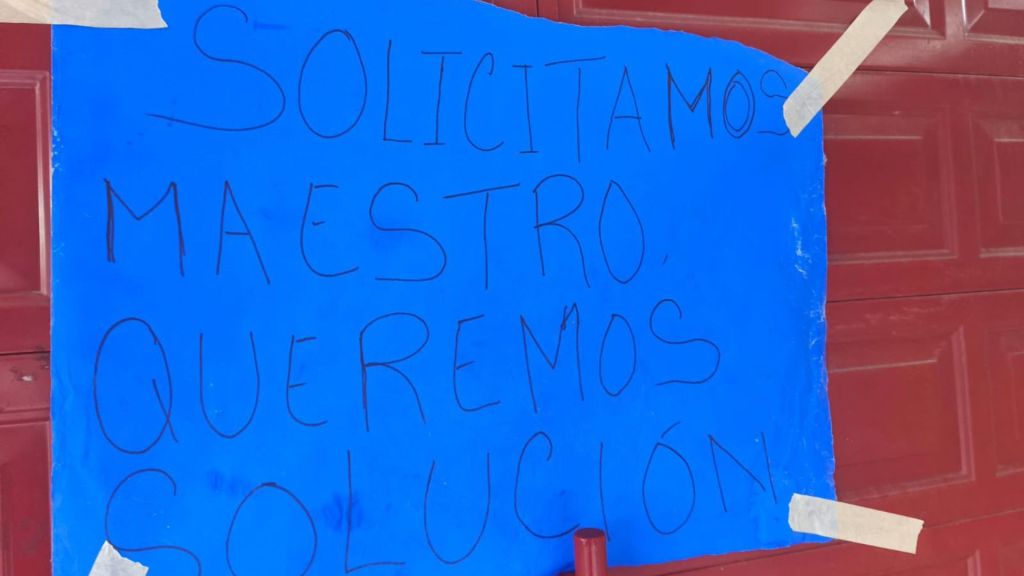 SOLICITAMOS
MAESTRO,
QUEREMOS
SOLUCIÓN